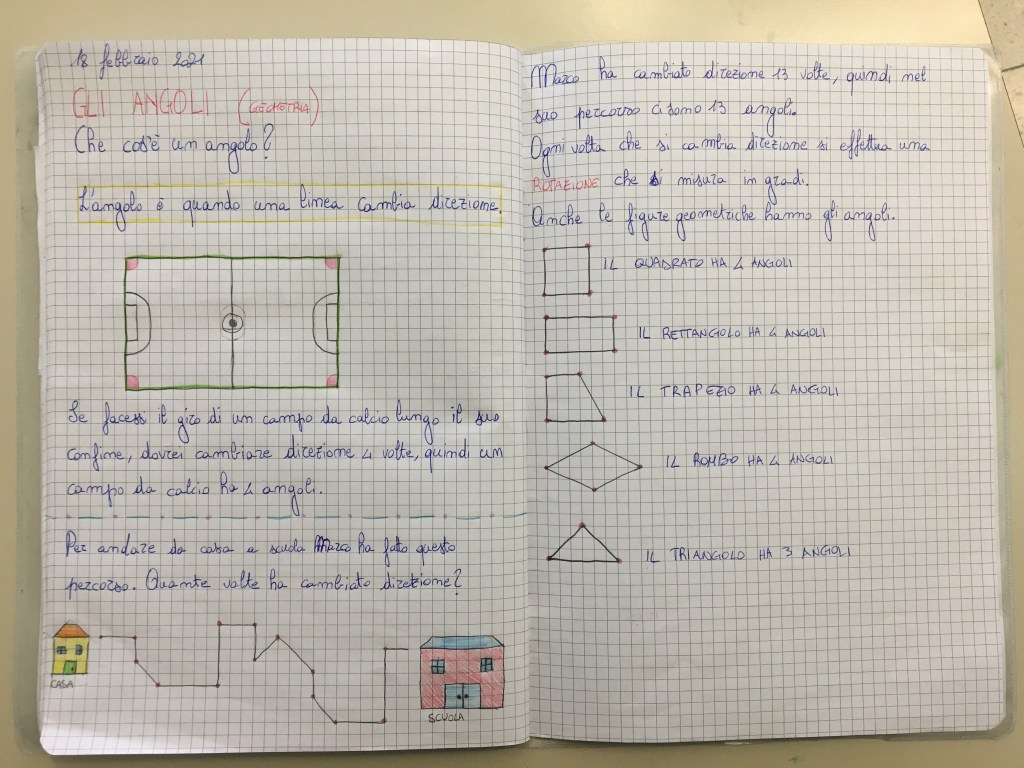 18 febbraio 2021
GLI ANGOLI (GEOMETRIA)
Che cos'è un angolo?
L'angolo è quando una linea cambia direzione.
Se facessi il giro di un campo da calcio lungo il suo
confine, dovrei cambiare direzione 4 volte, quindi un
campo da calcio ha 4 angoli.
Per andare da casa a scuola Marco ha fatto questo
percorso. Quante volte ha cambiato direzione?
CASA
SCUOLA
Marco ha cambiato direzione 13 volte, quindi nel
suo percorso ci sono 13 angoli.
Ogni volta che si cambia direzione si effettua una
ROTAZIONE che si misura in gradi.
Anche le figure geometriche hanno gli angoli.
IL QUADRATO HA 4 ANGOLI
IL RETTANGOLO HA 4 ANGOLI
IL TRAPEZIO HA 4 ANGOLI
IL ROMBO HA 4 ANGOLI
IL TRIANGOLO HA 3 ANGOLI